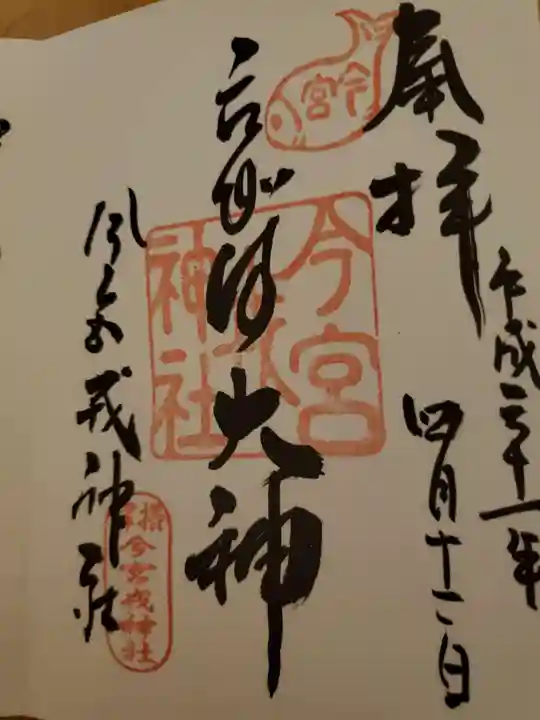 奉拝
平成三十一年
四月十二日
今宮
大神
今宮戎神社
今宮戎神社
今宮戎神社